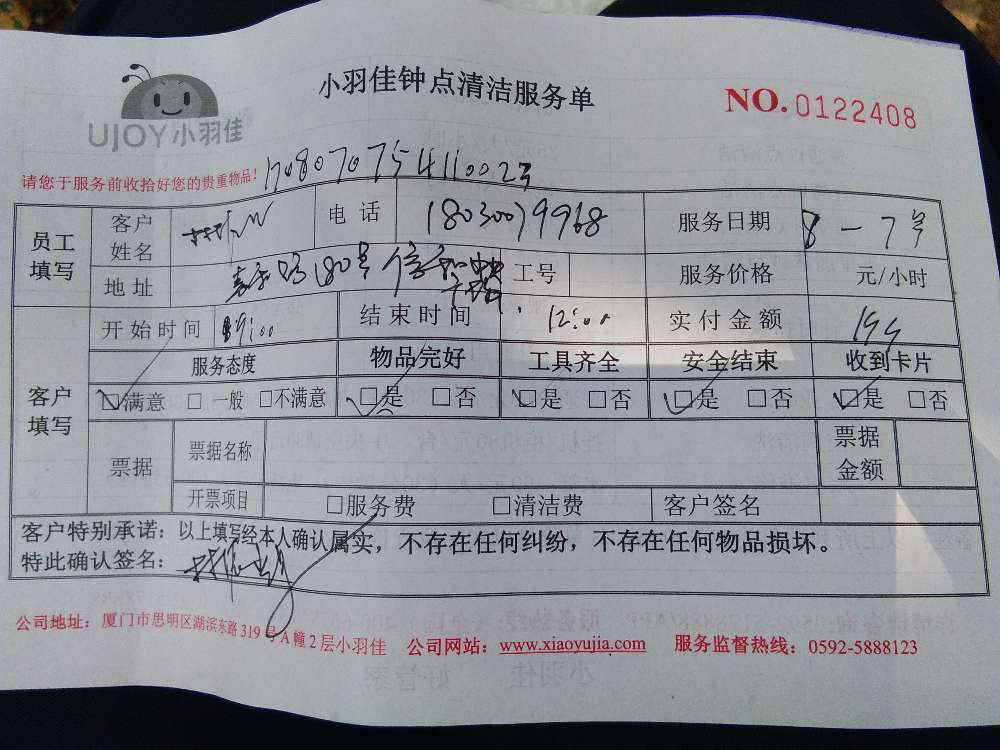 小羽佳钟点清洁服务单
NO.0122408
UJOY小羽佳
请您于服务前收拾好您的贵重物品!
1708070754110023
员工填写 客户姓名 电话 18030079968 服务日期 8-7号
地址 180号 工号 服务价格 元/小时
客户填写 开始时间 9:00 结束时间 12:00 实付金额 199
服务态度 物品完好 工具齐全 安全结束 收到卡片
☑满意 □一般 □不满意 ☑是 □否 ☑是 □否 ☑是 □否 ☑是 □否
票据 票据名称 票据金额
开票项目 □服务费 □清洁费 客户签名
客户特别承诺：以上填写经本人确认属实，不存在任何纠纷，不存在任何物品损坏。
特此确认签名：
公司地址：厦门市思明区湖滨东路319号A幢2层小羽佳 公司网站：www.xiaoyujia.com 服务监督热线：0592-5888123